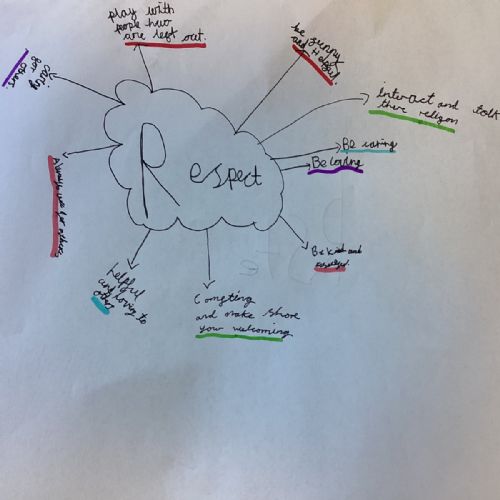 Respect
play with
people huo
are left out.
be funny
and Helpful.
interact and talk
there religion
Be caring
Be loving
Be kind and
Comgting
and make shore
your welcoming
helpful
and loving to
others
Always use for others.
caring
for others.